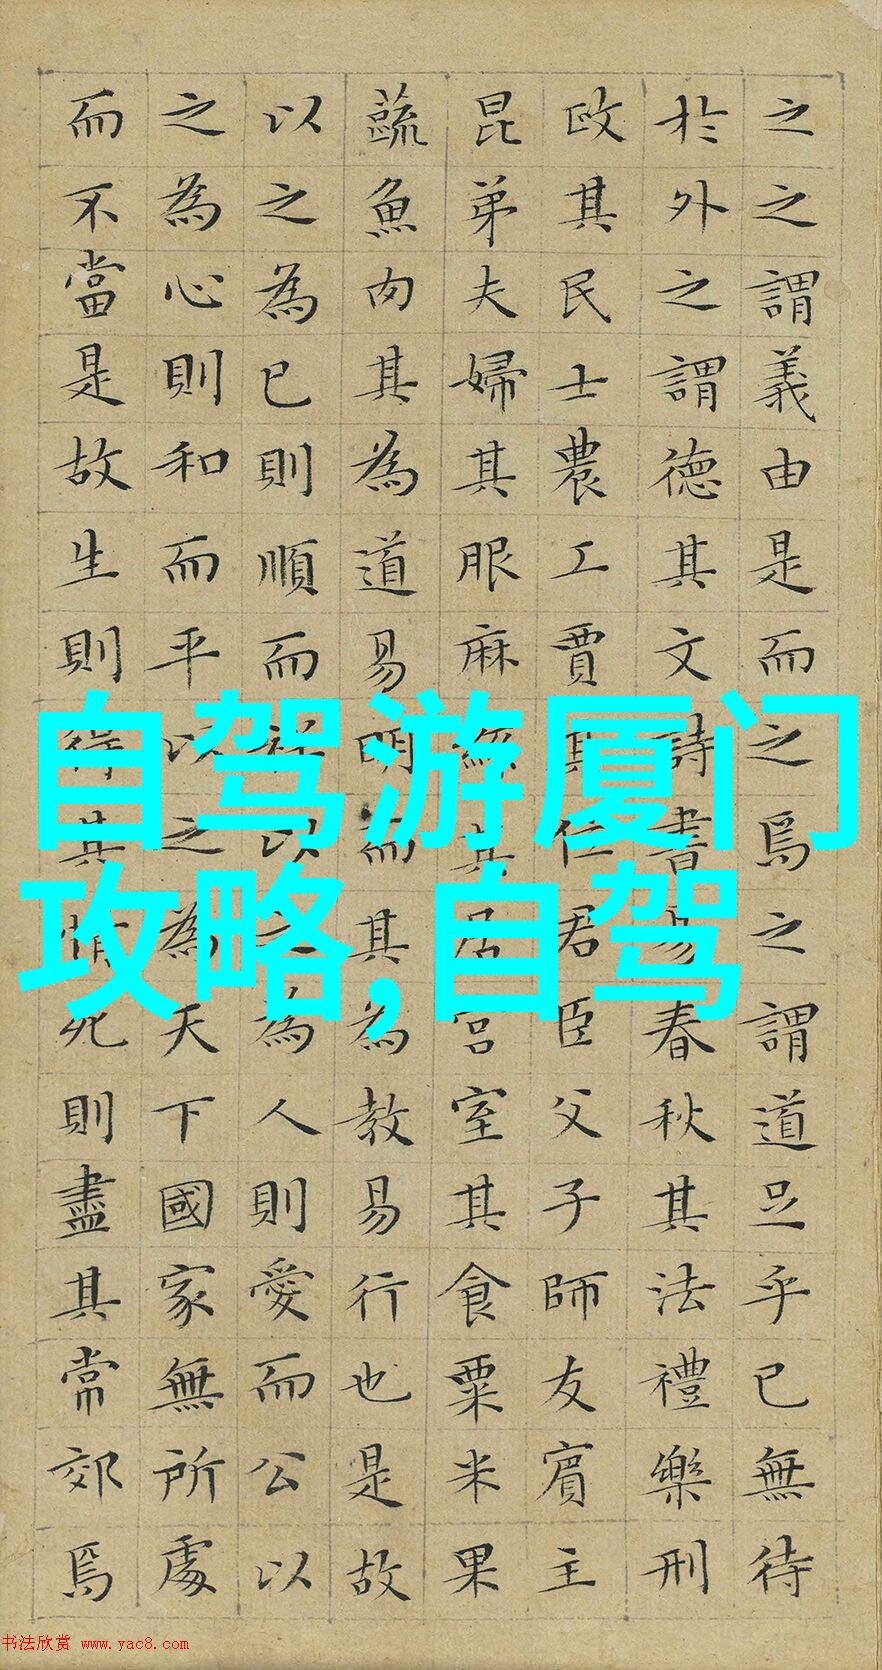 之之謂義由是而之焉之謂道足乎已無待
於外之謂德其文詩書易春秋其法禮樂刑
政其民士農工賈其位君臣父子師友賓主
昆弟夫婦其服麻絲其居宮室其食粟米果
蔬魚肉其為道易明而其為教易行也是故
以之為已則順而祥以之為人則愛而公以
之為心則和而平以之為天下國家無所處
而不當是故生則得其情死則盡其常郊焉
自驾游厦门
攻略,自驾
书法欣赏 www.yac8.com